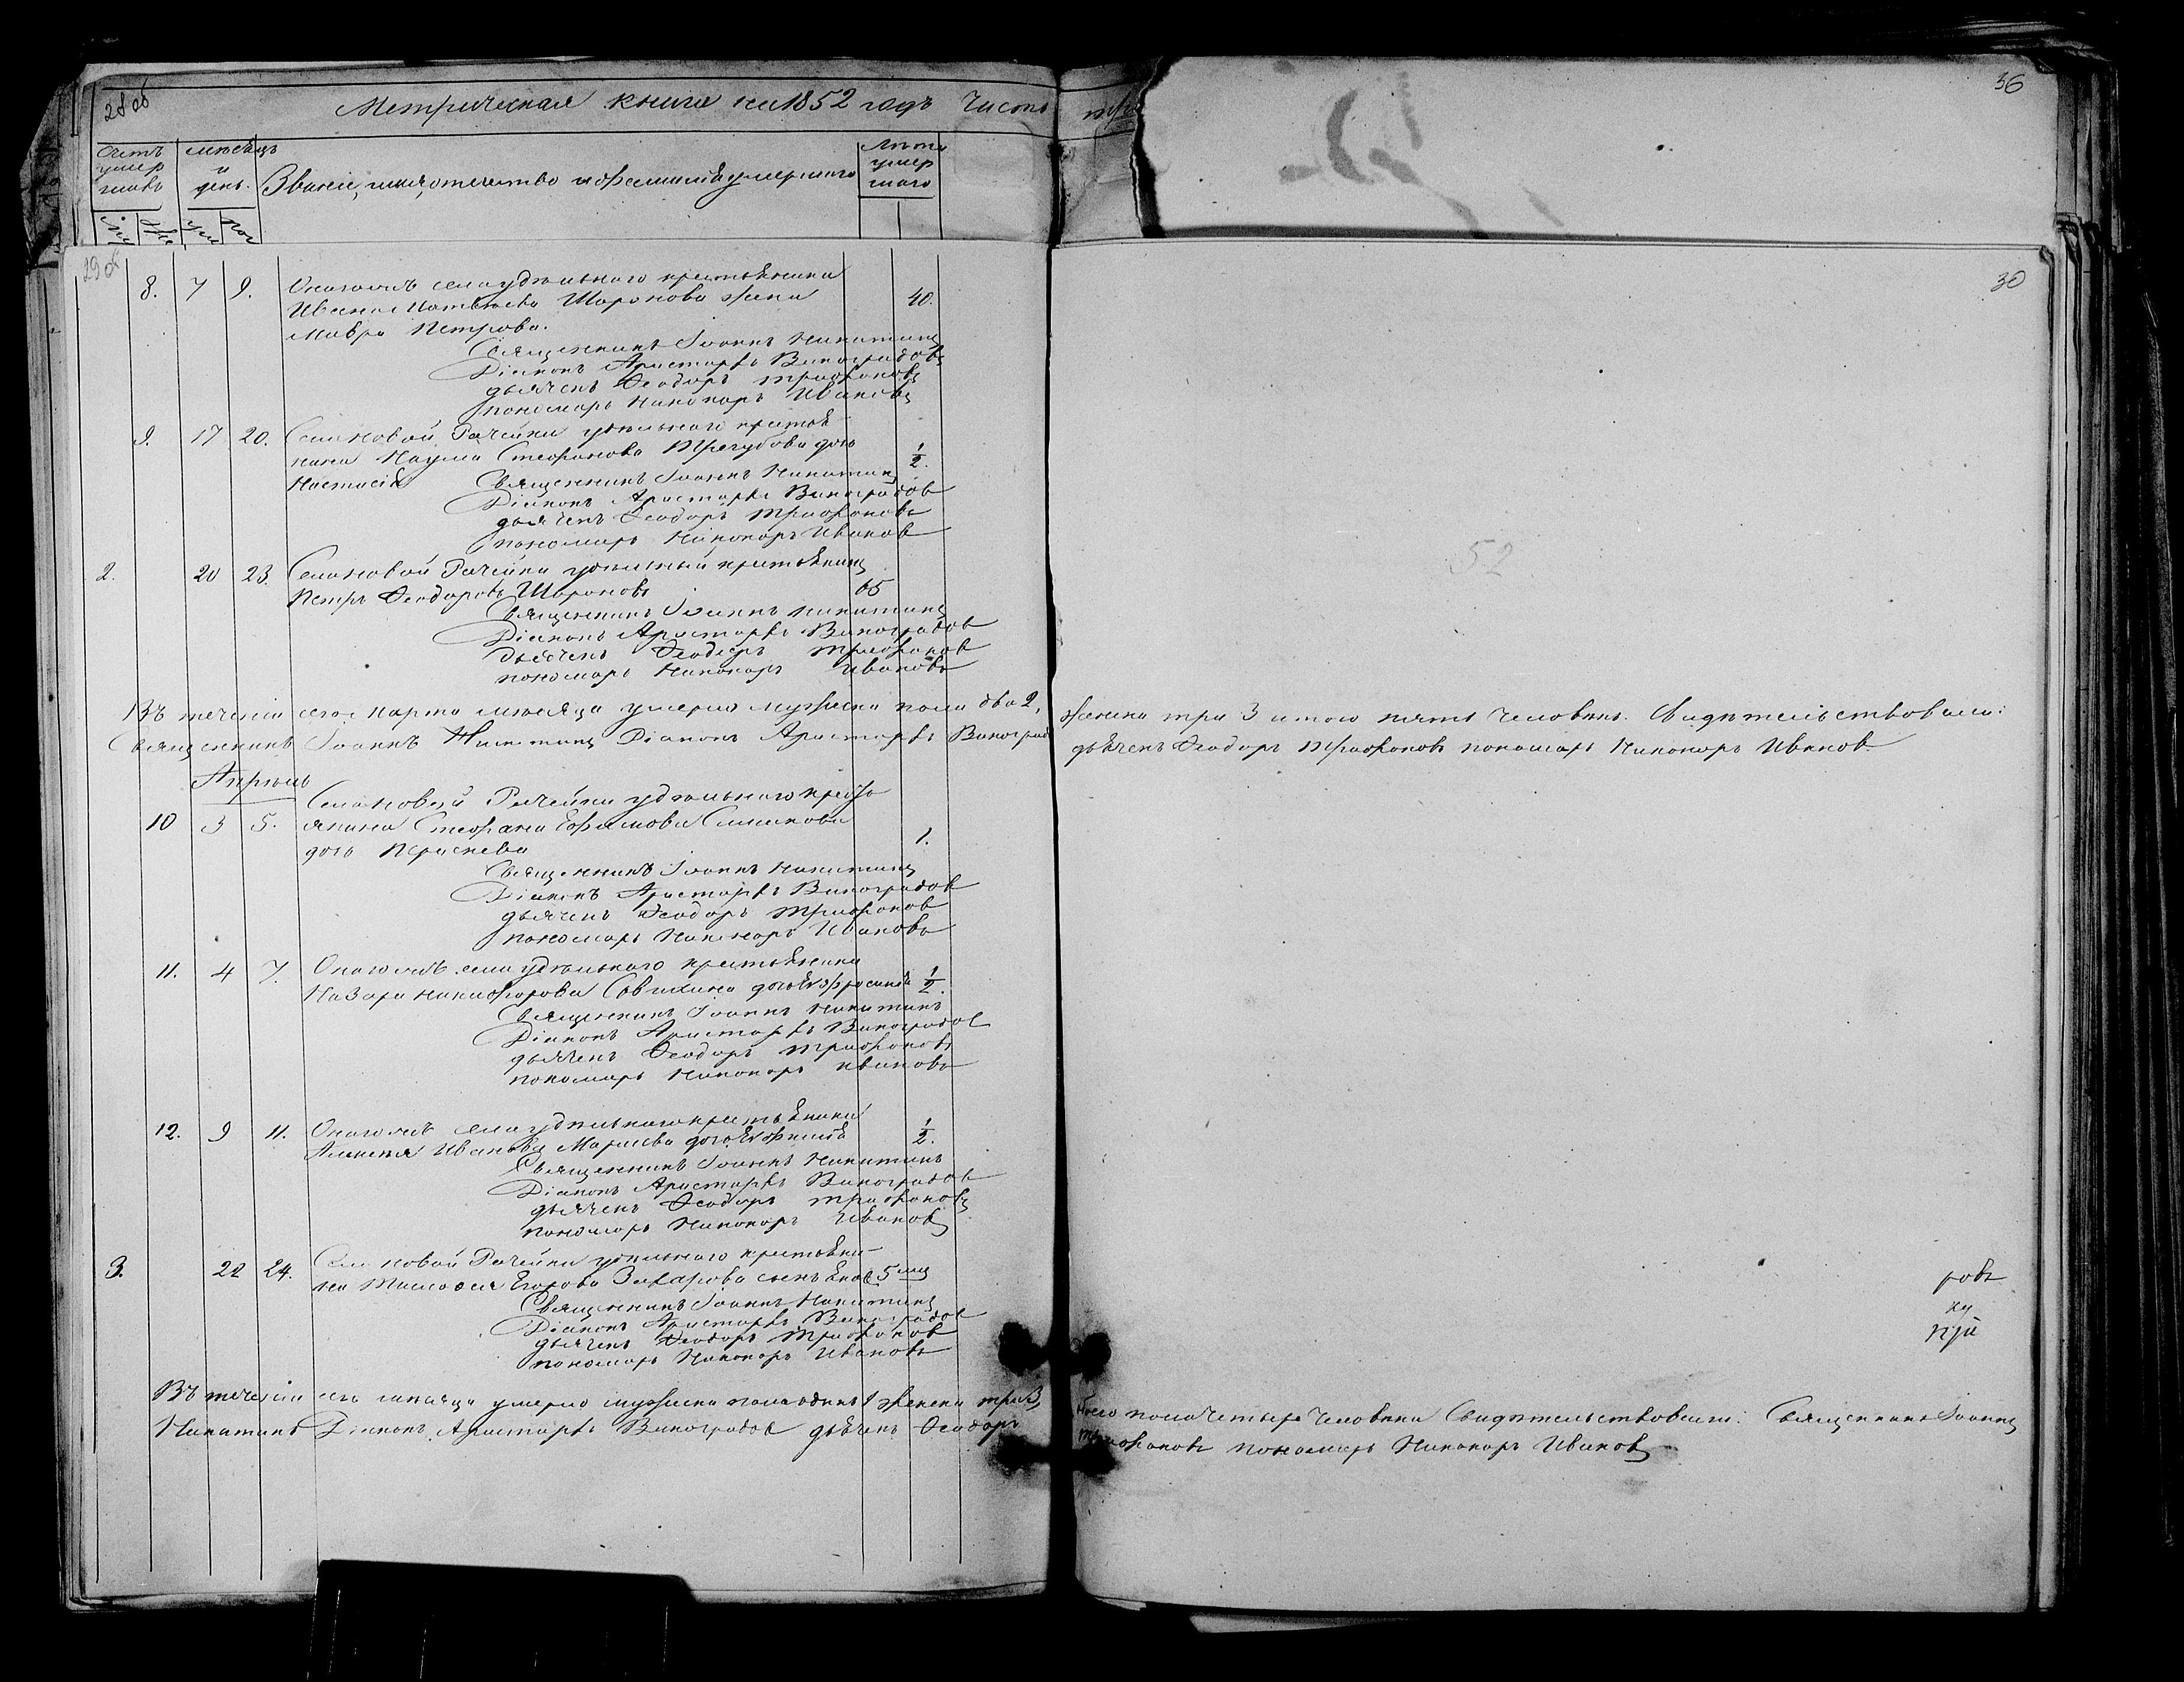 28 об
Метрическая книга на 1852 годъ Часть
36
Счетъ умершихъ
мѣсяцъ и день.
Званіе, имя, отечество и фамилія умершаго
Лѣта умершаго
29 об
30
8. 7 9. Онагожъ села удѣльнаго крестьянина
Ивана Матвѣева Шаронова жена 40.
Мавра Петрова.
Священникъ Іоаннъ Никитинъ
Діаконъ Аристархъ Виноградовъ
дьячекъ Феодоръ Трифоновъ
пономарь Никаноръ Ивановъ
9. 17 20. Села Новой Рачейки удѣльнаго крестья
нина Наума Стефанова Трегубова дочь 1/2.
Настасія Священникъ Іоаннъ Никитинъ
Діаконъ Аристархъ Виноградов
дьячекъ Феодоръ Трифоновъ
пономарь Никаноръ Иванов
2. 20 23 Села Новой Рачейки удѣльный крестьянинъ
Петръ Феодоровъ Шароновъ 65
Священникъ Іоаннъ Никитинъ
Діаконъ Аристархъ Виноградов
дьячекъ Феодоръ Трифонов
пономарь Никаноръ Ивановъ
Въ теченіи сего Марта мѣсяца умерло мужеска пола два 2, женска три 3 итого пять человѣкъ. Свидѣтельствовали:
Священникъ Іоаннъ Никитинъ Діаконъ Аристархъ Виноград дьячекъ Феодоръ Трифоновъ пономарь Никаноръ Иванов
Апрѣль
Села Новой Рачейки удѣльнаго крестьянина
10 3 5. Стефана Ефимова 1.
дочь
Священникъ Іоаннъ Никитинъ
Діаконъ Аристархъ Виноградов
дьячекъ Феодоръ Трифонов
пономарь Никаноръ Ивановъ
11. 4 7. Онагожъ села удѣльнаго крестьянина
Назара Никифорова Савихина дочь Евфросинія 1/2.
Священникъ Іоаннъ Никитинъ
Діаконъ Аристархъ Виноградов
дьячекъ Феодоръ Трифоновъ
пономарь Никаноръ Ивановъ
12. 9 11. Онагожъ села удѣльнаго крестьянина
Алексѣя Иванова дочь 1/2.
Священникъ Іоаннъ Никитинъ
Діаконъ Аристархъ Виноградов
дьячекъ Феодоръ Трифоновъ
пономарь Никаноръ Ивановъ
3. 22 24. Села Новой Рачейки удѣльнаго крестьяни-
на Тимофея Егорова Захарова сынъ 5 мц
Священникъ Іоаннъ Никитинъ
Діаконъ Аристархъ Виноградов
дьячекъ Феодоръ Трифонов
пономарь Никаноръ Ивановъ
52
ровъ
Въ теченіи сего мѣсяца умерло мужеска пола одинъ 1 женска три 3, пола четыре человѣка Свидѣтельствовали: Священникъ Іоаннъ
Никитинъ Діаконъ Аристархъ Виноградов дьячекъ Феодоръ Трифоновъ пономарь Никаноръ Ивановъ